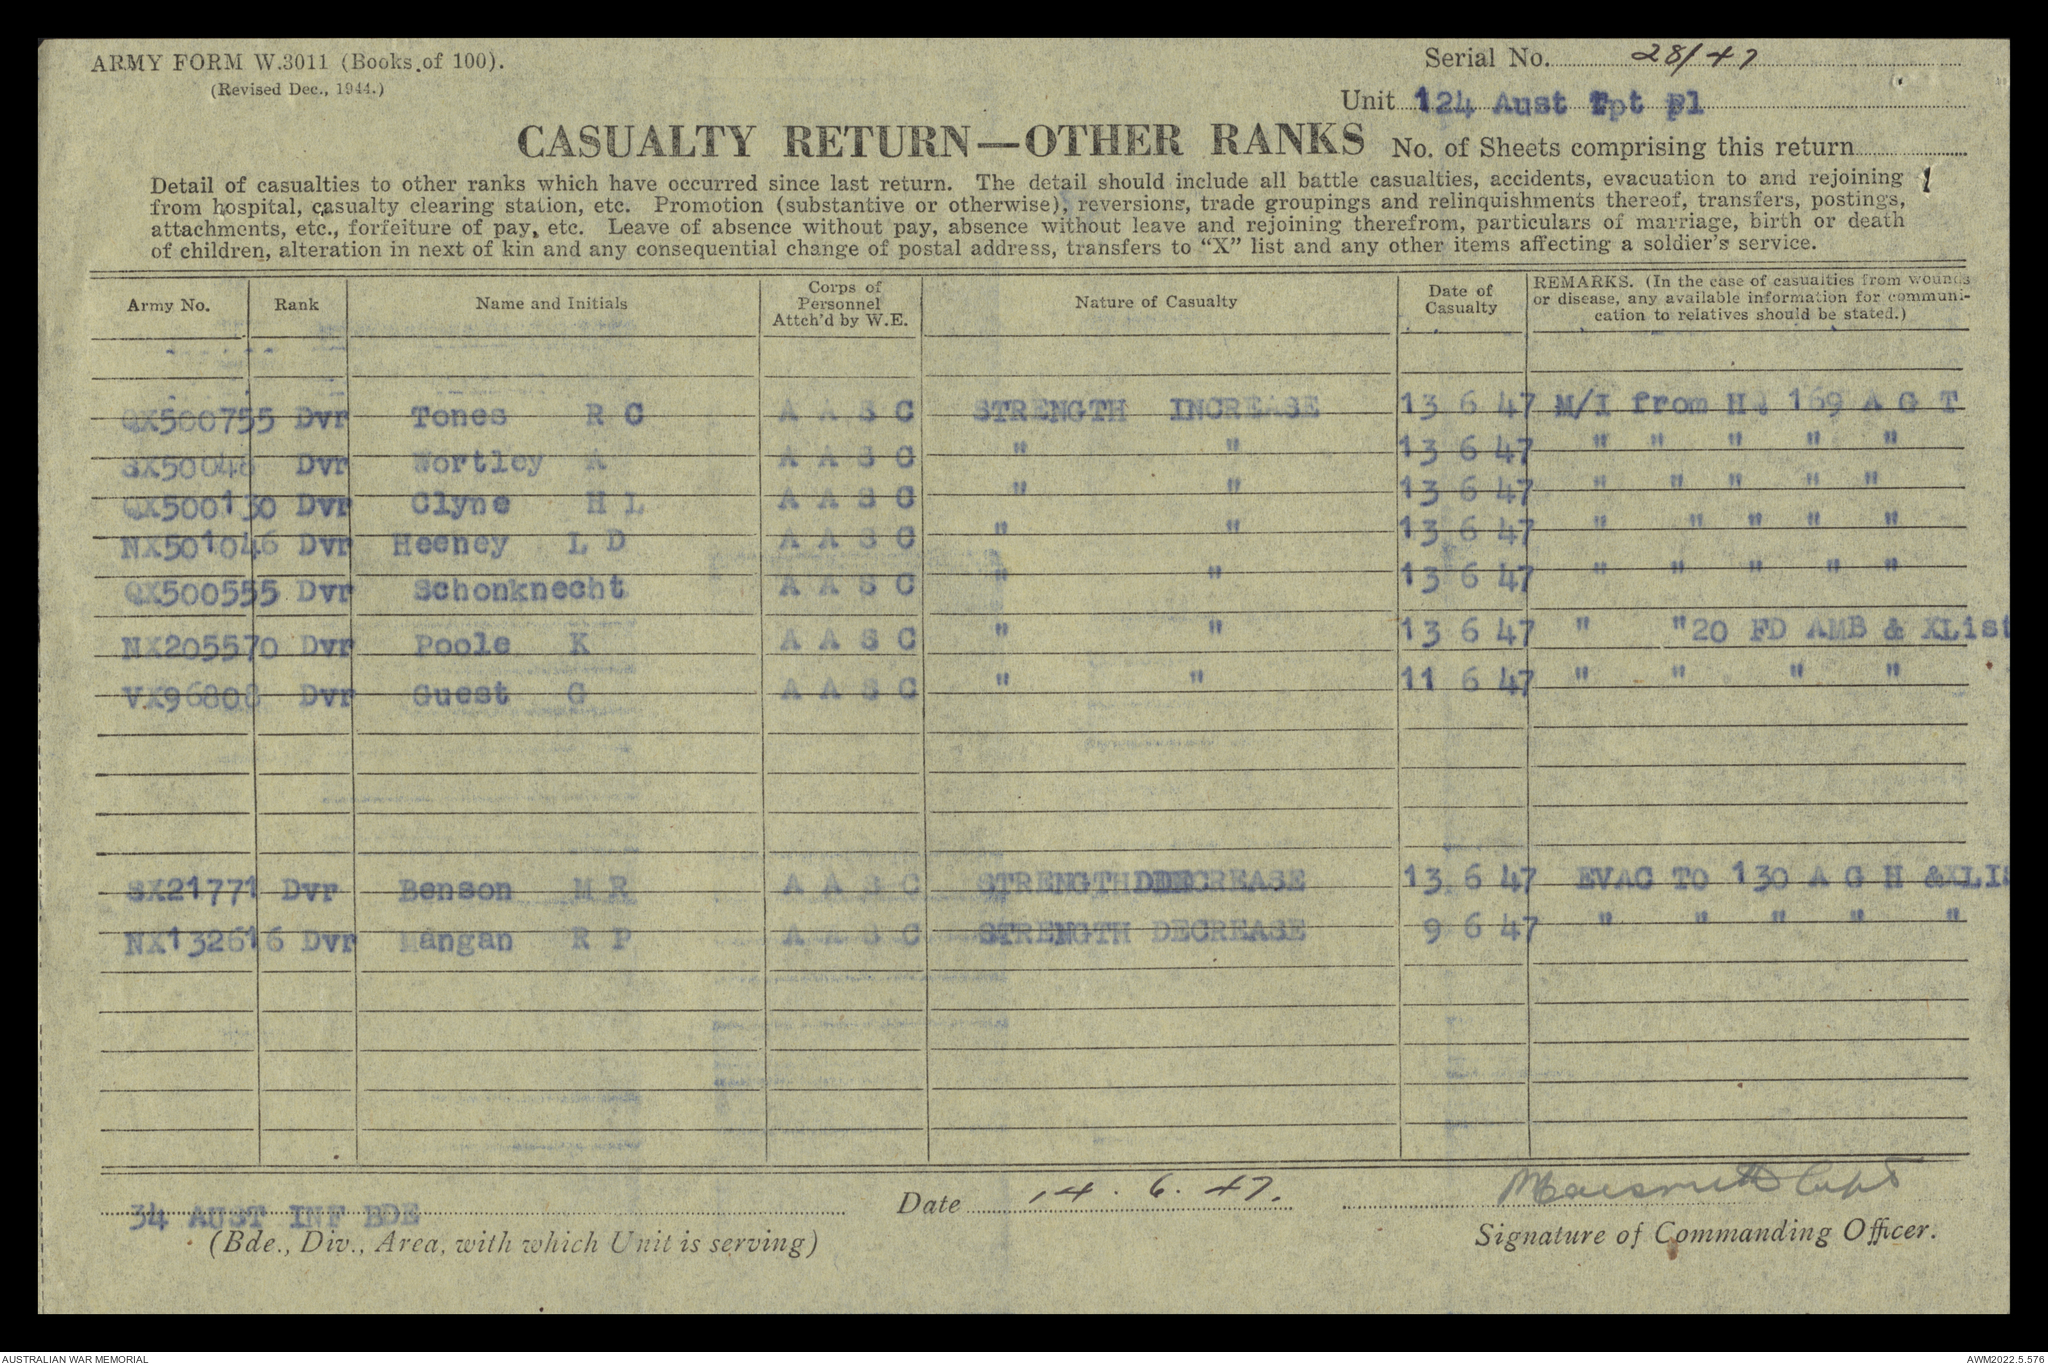 ARMY FORM W.3011 (Books of 100).
(Revised Dec., 1944.)
Serial No. 28/47
Unit 124 Aust Tpt Pl
CASUALTY RETURN—OTHER RANKS
No. of Sheets comprising this return 1
Detail of casualties to other ranks which have occurred since last return. The detail should include all battle casualties, accidents, evacuation to and rejoining
from hospital, casualty clearing station, etc. Promotion (substantive or otherwise), reversions, trade groupings and relinquishments thereof, transfers, postings,
attachments, etc., forfeiture of pay, etc. Leave of absence without pay, absence without leave and rejoining therefrom, particulars of marriage, birth or death
of children, alteration in next of kin and any consequential change of postal address, transfers to “X” list and any other items affecting a soldier's service.
Army No. Rank Name and Initials Corps of Personnel Attch'd by W.E. Nature of Casualty Date of Casualty REMARKS. (In the case of casualties from wounds or disease, any available information for communi-cation to relatives should be stated.)
QX500755 Dvr Tones R C A A S C STRENGTH INCREASE 13 6 47 M/I from H. 169 A G T
SX50048 Dvr Wortley A A A S C " " 13 6 47 " " " " "
QX500130 Dvr Clyne H L A A S C " " 13 6 47 " " " " "
NX501046 Dvr Heeney L D A A S C " " 13 6 47 " " " " "
QX500555 Dvr Schonknecht A A S C " " 13 6 47 " " " " "
NX205570 Dvr Poole K A A S C " " 13 6 47 " " 20 FD AMB & XList
VX96808 Dvr Guest G A A S C " " 11 6 47 " " " "
SX21771 Dvr Benson M R A A S C STRENGTH DECREASE 13 6 47 EVAC TO 130 A G H &XLIS
NX132616 Dvr Mangan R P A A S C STRENGTH DECREASE 9 6 47 " " " " "
34 AUST INF BDE
(Bde., Div., Area, with which Unit is serving)
Date 14. 6. 47.
Capt
Signature of Commanding Officer.
AUSTRALIAN WAR MEMORIAL
AWM2022.5.576